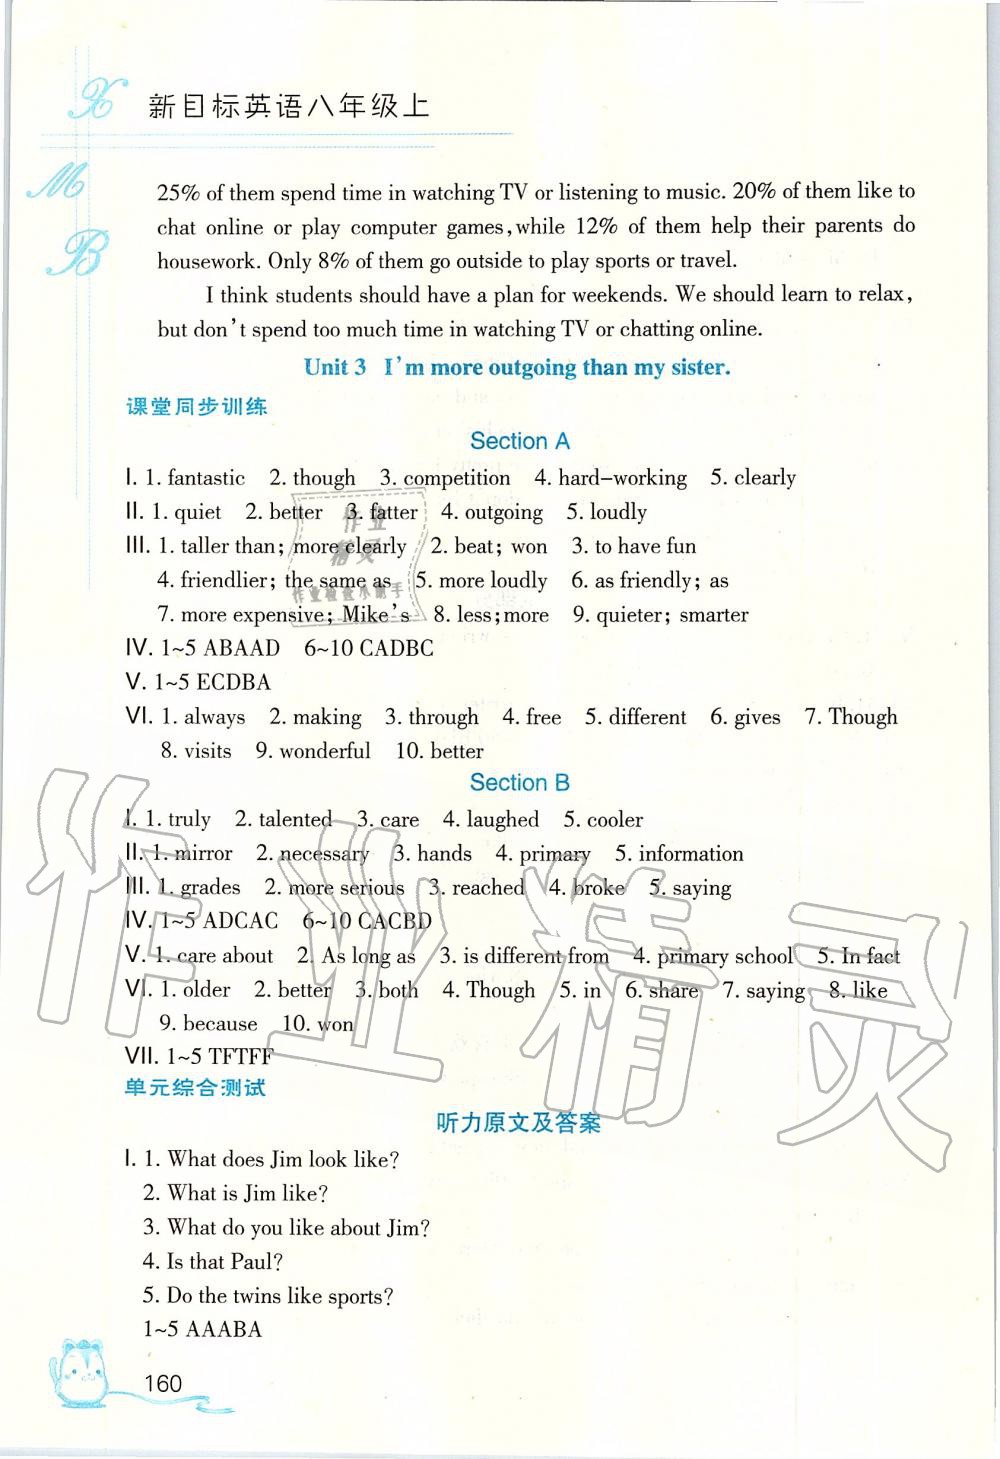 X
M
B
新目标英语八年级上
25% of them spend time in watching TV or listening to music. 20% of them like to
chat online or play computer games,while 12% of them help their parents do
housework. Only 8% of them go outside to play sports or travel.
I think students should have a plan for weekends. We should learn to relax,
but don't spend too much time in watching TV or chatting online.
Unit 3 I'm more outgoing than my sister.
课堂同步训练
Section A
I. 1. fantastic 2. though 3. competition 4. hard-working 5. clearly
II. 1. quiet 2. better 3. fatter 4. outgoing 5. loudly
III. 1. taller than; more clearly 2. beat; won 3. to have fun
4. friendlier; the same as 5. more loudly 6. as friendly; as
7. more expensive; Mike's 8. less;more 9. quieter; smarter
IV. 1~5 ABAAD 6~10 CADBC
V. 1~5 ECDBA
VI. 1. always 2. making 3. through 4. free 5. different 6. gives 7. Though
8. visits 9. wonderful 10. better
Section B
I. 1. truly 2. talented 3. care 4. laughed 5. cooler
II. 1. mirror 2. necessary 3. hands 4. primary 5. information
III. 1. grades 2. more serious 3. reached 4. broke 5. saying
IV. 1~5 ADCAC 6~10 CACBD
V. 1. care about 2. As long as 3. is different from 4. primary school 5. In fact
VI. 1. older 2. better 3. both 4. Though 5. in 6. share 7. saying 8. like
9. because 10. won
VII. 1~5 TFTFF
单元综合测试
听力原文及答案
I. 1. What does Jim look like?
2. What is Jim like?
3. What do you like about Jim?
4. Is that Paul?
5. Do the twins like sports?
1~5 AAABA
160
作业精灵
作业
精灵
作业检查小助手